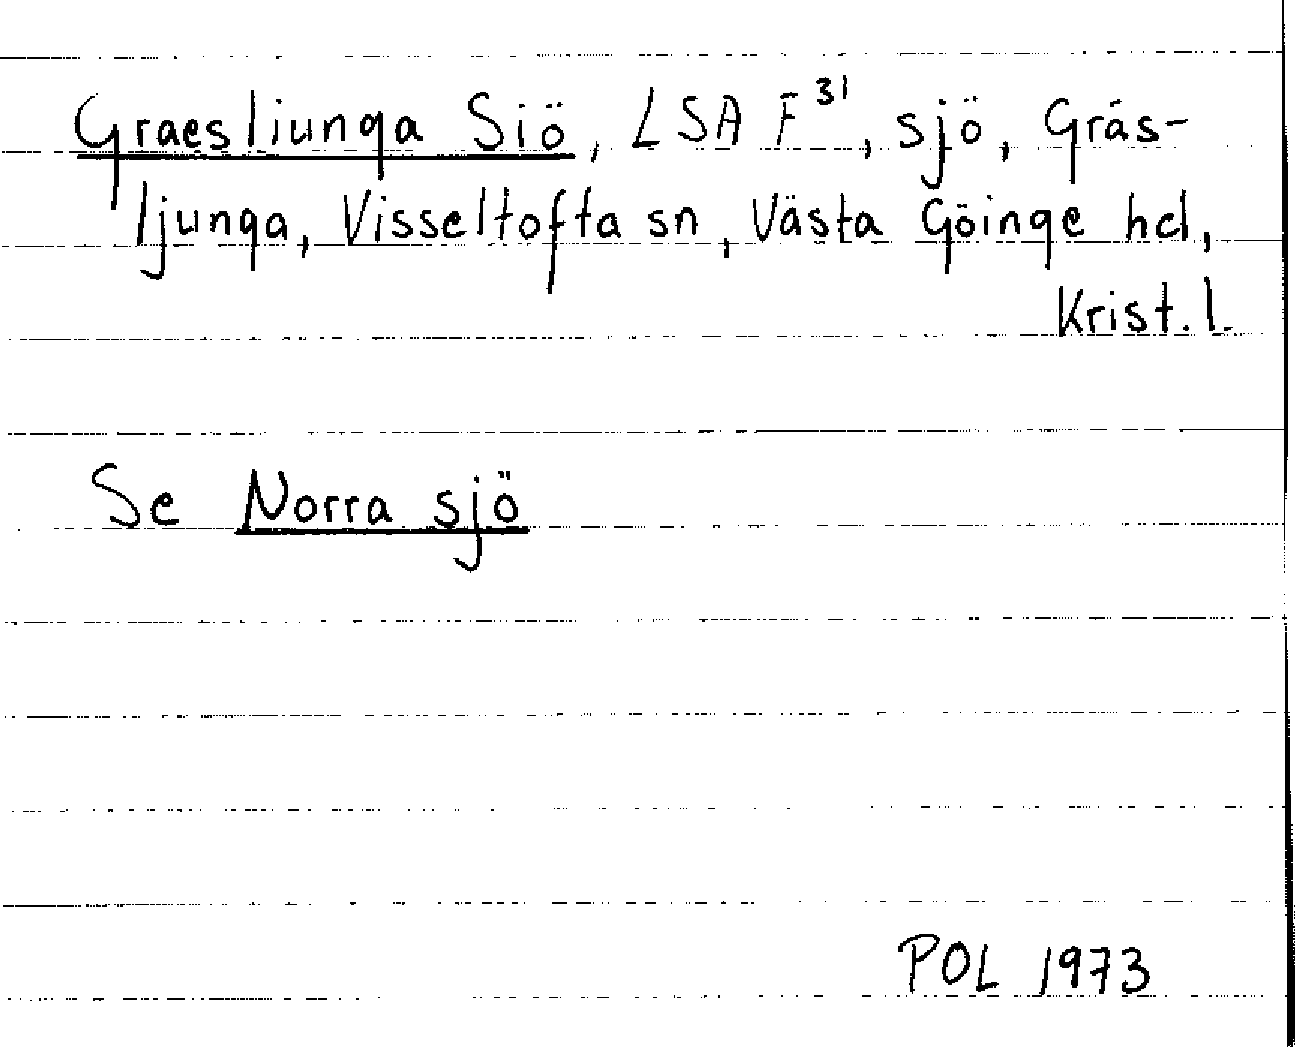 Graesliunga Siö, LSA F³¹, sjö, Gräs-
ljunga, Visseltofta sn, Västa Göinge hd,
Krist. l.
Se Norra sjö
POL 1973